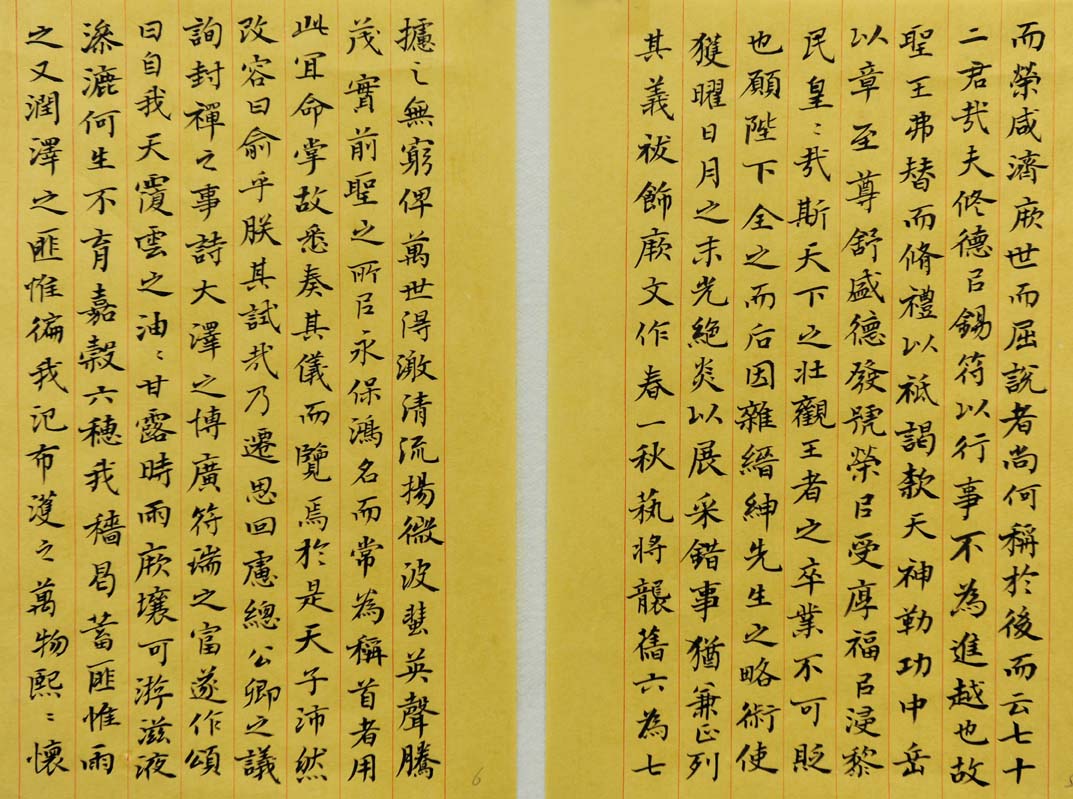 而榮咸濟厥世而屈說者尚何稱於後而云七十
二君哉夫修德㠯錫符以行事不為進越也故
聖王弗替而脩禮以祗謁欵天神勒功中岳
以章至尊舒盛德發號榮㠯受厚福㠯浸黎
民皇〻哉斯天下之壯觀王者之卒業不可貶
也願陛下全之而后因雜縉紳先生之略術使
獲曜日月之末光絶炎以展采錯事猶兼正列
其義祓飾厥文作春一秋埶將襲舊六為七
攄之無窮俾萬世得激清流揚微波蜚英聲騰
茂實前聖之所㠯永保鴻名而常為稱首者用
此宜命掌故悉奏其儀而覽焉於是天子沛然
改容曰俞乎朕其試哉乃遷思回慮總公卿之議
詢封禪之事詩大澤之博廣符瑞之富遂作頌
曰自我天覆雲之油〻甘露時雨厥壤可游滋液
滲漉何生不育嘉穀六穗我穡曷蓄匪惟雨
之又潤澤之匪惟徧我氾布濩之萬物熙〻懷
6